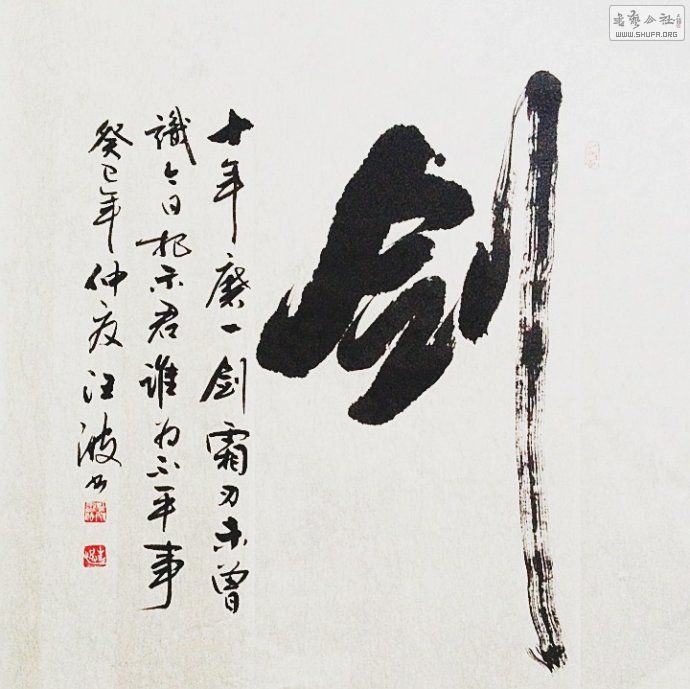 剑
十年磨一剑霜刃未曾
識今日把示君誰为不平事
癸巳年仲夏汪波书
書藝公社
WWW.SHUFA.ORG